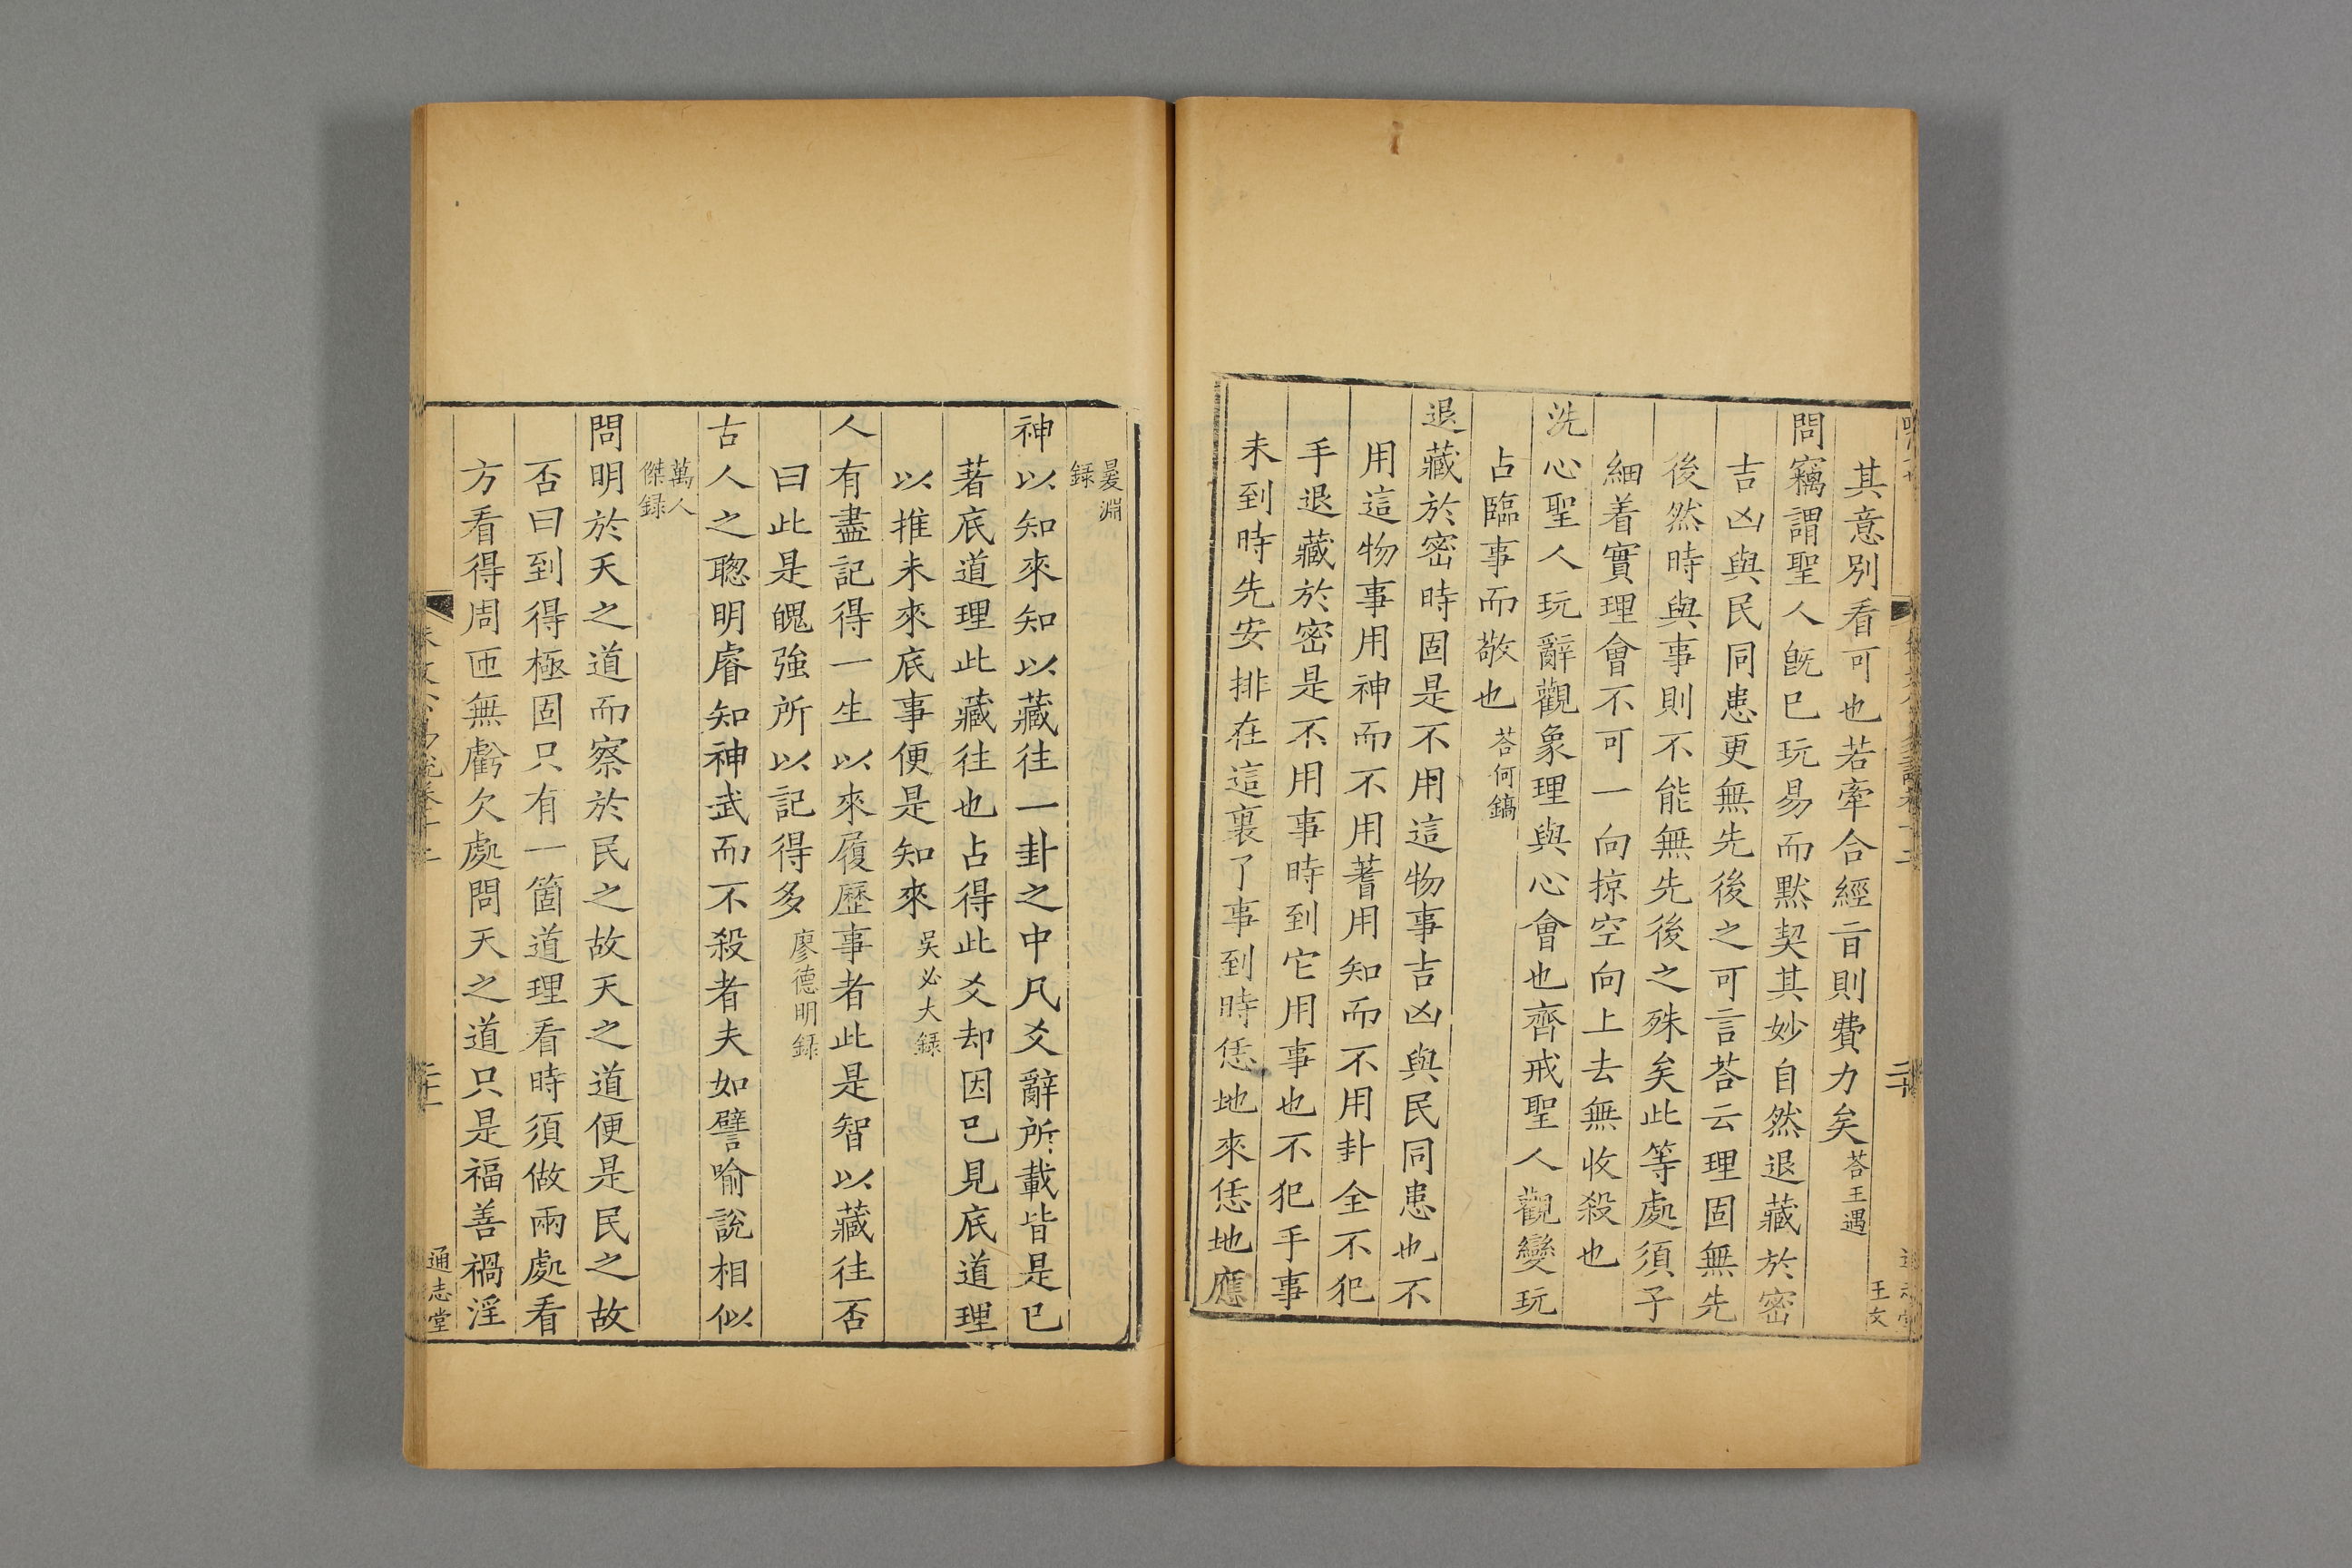 其意別看可也若牽合經旨則費力矣荅王遇
問竊謂聖人旣巳玩易而默契其妙自然退藏於密
吉凶與民同患更無先後之可言荅云理固無先
後然時與事則不能無先後之殊矣此等處須子
細着實理會不可一向掠空向上去無收殺也
洗心聖人玩辭觀象理與心會也齊戒聖人觀變玩
占臨事而敬也荅何鎬
退藏於密時固是不用這物事吉凶與民同患也不
用這物事用神而不用蓍用知而不用卦全不犯
手退藏於密是不用事時到它用事也不犯手事
未到時先安排在這裏了事到時恁地來恁地應
二十
王文
㬊淵
録
神以知來知以藏徃一卦之中凡爻辭所載皆是巳
著底道理此藏徃也占得此爻却因巳見底道理
以推未來底事便是知來吴必大録
人有盡記得一生以來履歷事者此是智以藏徃否
曰此是魄強所以記得多廖德明録
古人之聰明睿知神武而不殺者夫如譬喻說相似
萬人
傑録
問明於天之道而察於民之故天之道便是民之故
否曰到得極固只有一箇道理看時須做兩處看
方看得周匝無虧欠處問天之道只是福善禍淫
通志堂